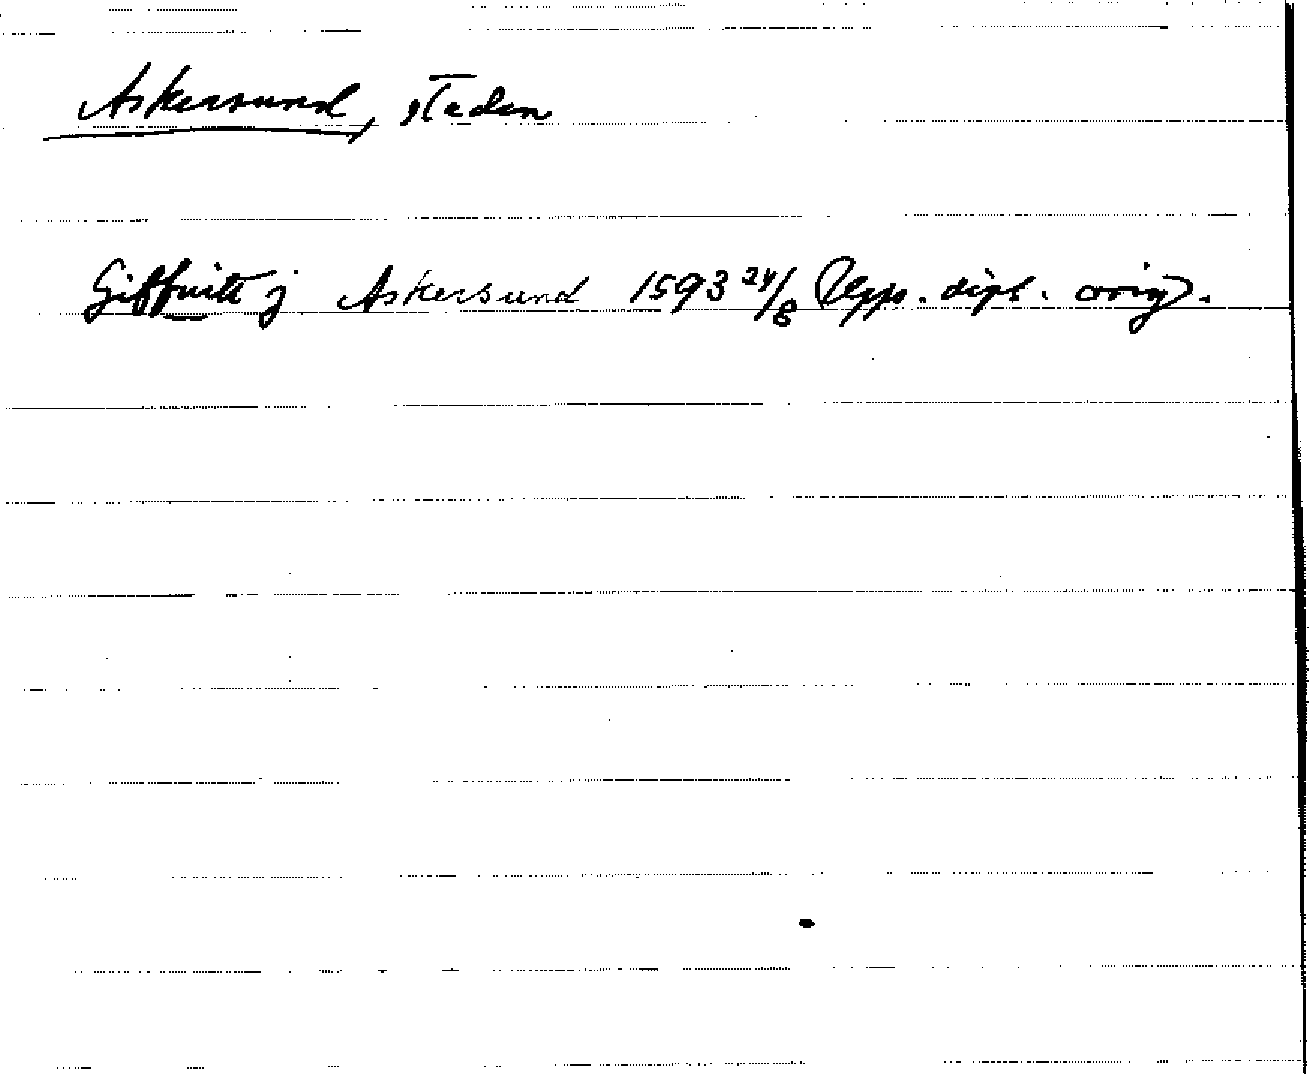 Askersund, staden
Giffuitt j Askersund 1593 24/8 (Upps. dipl. orig).